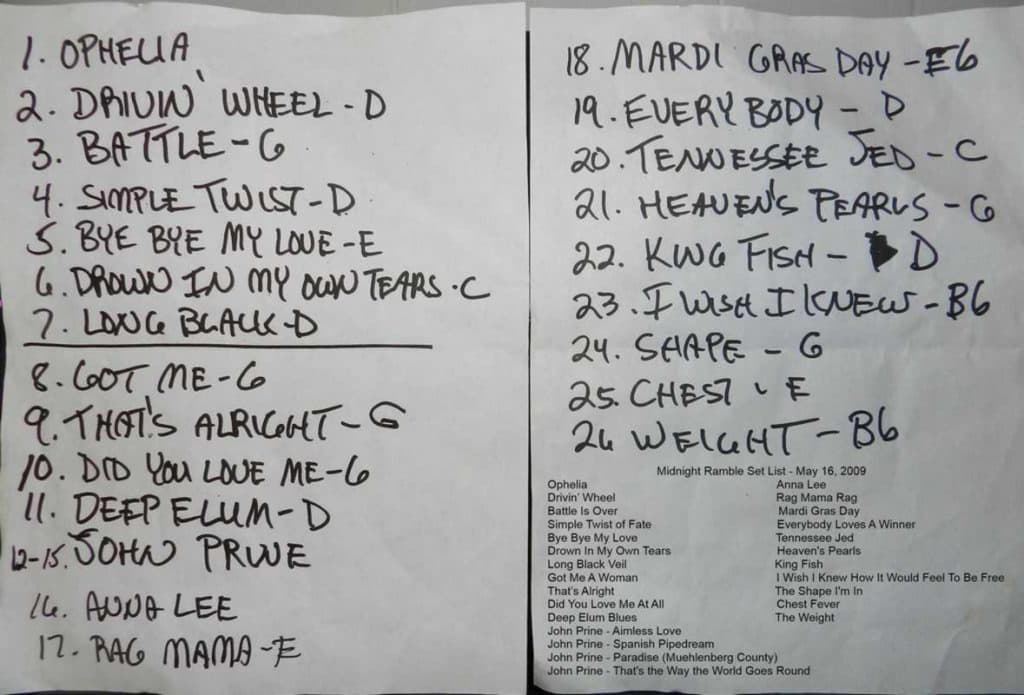 1. OPHELIA
2. DRIVIN' WHEEL - D
3. BATTLE - G
4. SIMPLE TWIST - D
5. BYE BYE MY LOVE - E
6. DROWN IN MY OWN TEARS - C
7. LONG BLACK - D
8. GOT ME - G
9. THAT'S ALRIGHT - G
10. DID YOU LOVE ME - G
11. DEEP ELUM - D
12-15. JOHN PRINE
16. ANNA LEE
17. RAG MAMA - E
18. MARDI GRAS DAY - E6
19. EVERYBODY - D
20. TENNESSEE JED - C
21. HEAVEN'S PEARLS - G
22. KING FISH - D
23. I WISH I KNEW - B6
24. SHAPE - G
25. CHEST - E
26 WEIGHT - B6
Midnight Ramble Set List - May 16, 2009
Ophelia
Drivin' Wheel
Battle Is Over
Simple Twist of Fate
Bye Bye My Love
Drown In My Own Tears
Long Black Veil
Got Me A Woman
That's Alright
Did You Love Me At All
Deep Elum Blues
John Prine - Aimless Love
John Prine - Spanish Pipedream
John Prine - Paradise (Muehlenberg County)
John Prine - That's the Way the World Goes Round
Anna Lee
Rag Mama Rag
Mardi Gras Day
Everybody Loves A Winner
Tennessee Jed
Heaven's Pearls
King Fish
I Wish I Knew How It Would Feel To Be Free
The Shape I'm In
Chest Fever
The Weight